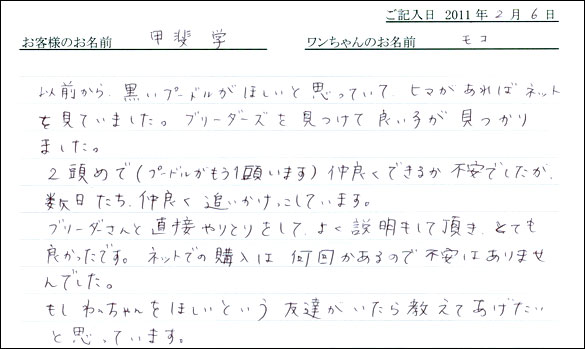 ご記入日 2011年2月6日
お客様のお名前 甲斐 学 ワンちゃんのお名前 モコ
以前から、黒いプードルがほしいと思っていて、ヒマがあればネット
を見ていました。ブリーダーズを見つけて良い子が見つかり
ました。
2頭めで(プードルがもう1頭います)仲良くできるか不安でしたが、
数日たち、仲良く追いかけっこしています。
ブリーダさんと直接やりとりをして、よく説明もして頂き、とても
良かったです。ネットでの購入は何回かあるので不安はありませ
んでした。
もしわんちゃんをほしいという友達がいたら教えてあげたい
と思っています。